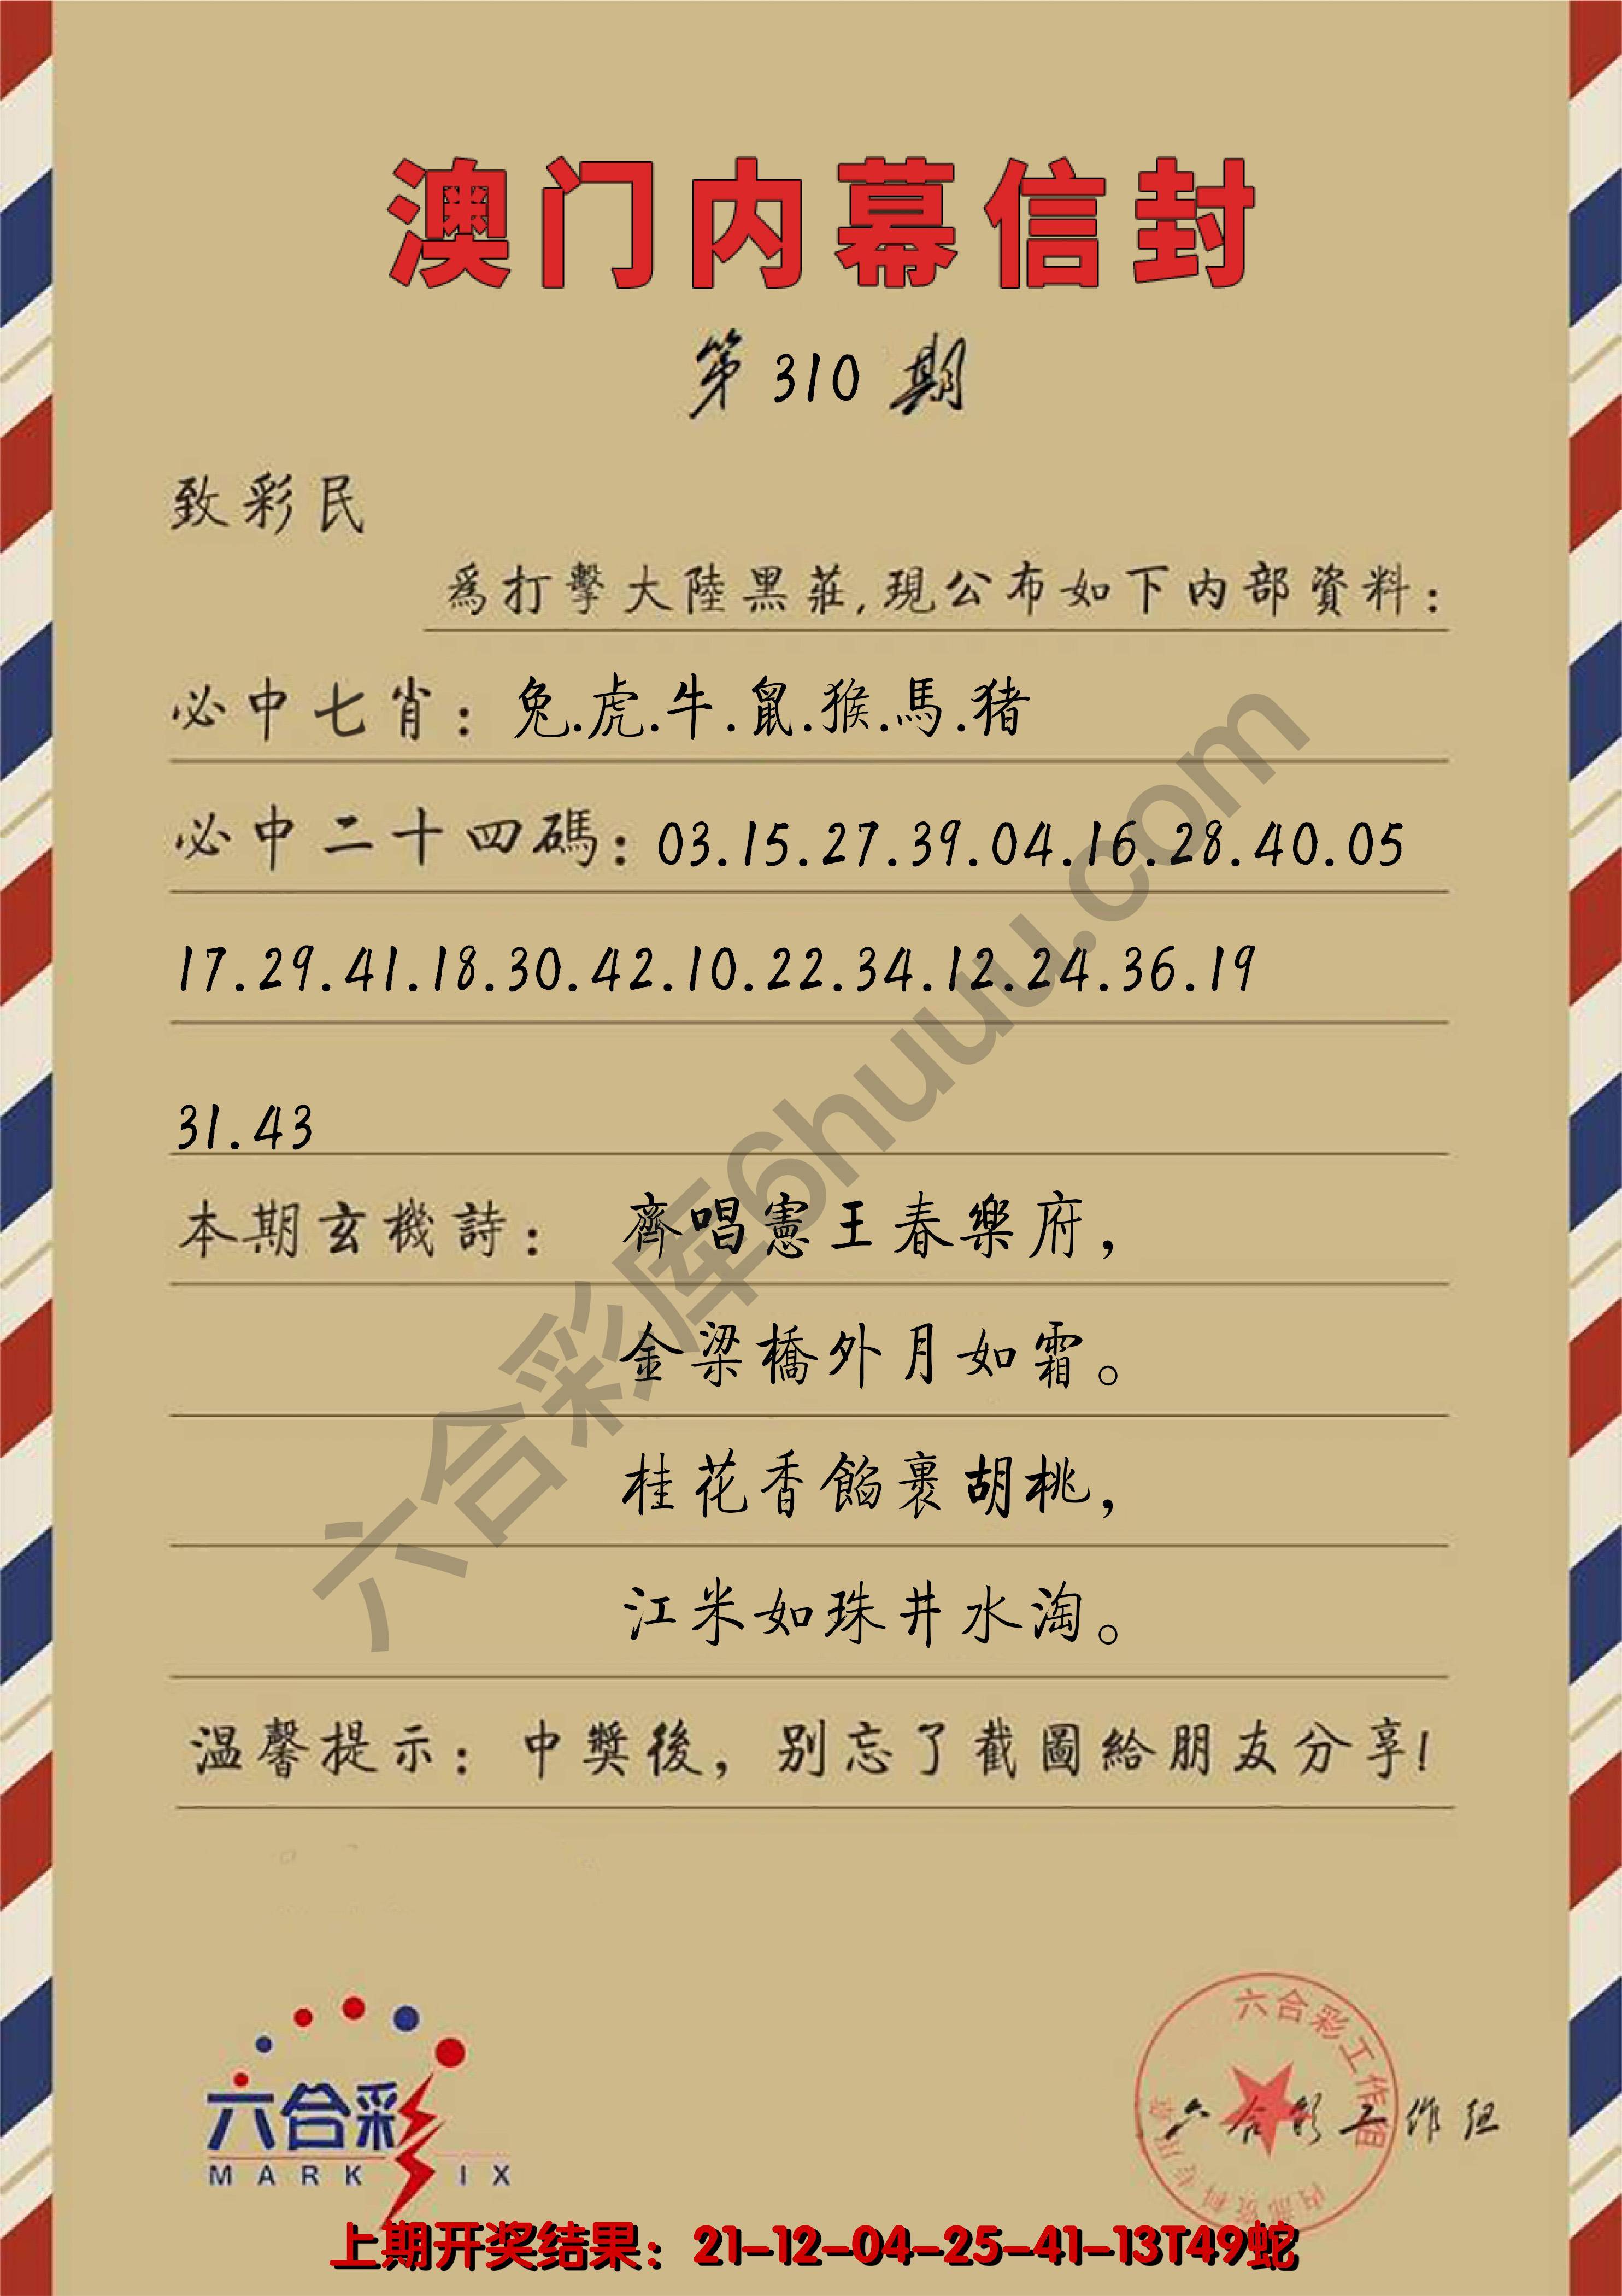 澳门内幕信封
第310期
致彩民
爲打擊大陸黑莊,現公布如下内部資料:
必中七肖:兔.虎.牛.鼠.猴.馬.猪
必中二十四碼:03.15.27.39.04.16.28.40.05
17.29.41.18.30.42.10.22.34.12.24.36.19
31.43
本期玄機詩: 齊唱憲王春樂府,
金梁橋外月如霜。
桂花香餡裹胡桃,
江米如珠井水淘。
温馨提示:中獎後,别忘了截圖給朋友分享!
六合彩库6huuu.com
六合彩
MARK IX
六合彩工作组
内部资料专用章
六合彩工作组
上期开奖结果:21-12-04-25-41-13T49蛇